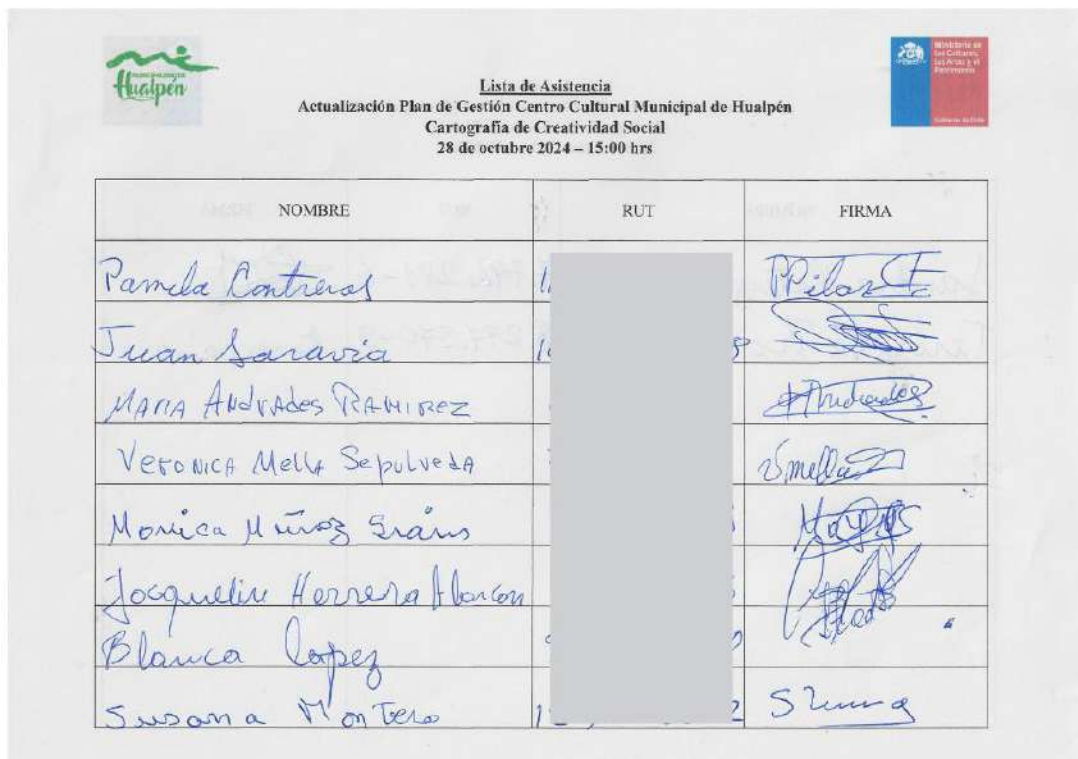 MUNICIPALIDAD DE
Hualpén
Ministerio de
las Culturas,
las Artes y el
Patrimonio
Gobierno de Chile
Lista de Asistencia
Actualización Plan de Gestión Centro Cultural Municipal de Hualpén
Cartografía de Creatividad Social
28 de octubre 2024 – 15:00 hrs
NOMBRE RUT FIRMA
Pamela Contreras PPilar
Juan Saravia
MARIA ANdRAdes RAMIREZ Andrades
VERONICA Mella SepulvedA Vmella
Monica Muñoz
Jacqueline Herrera Alarcon
Blanca Lopez
Susana Montero